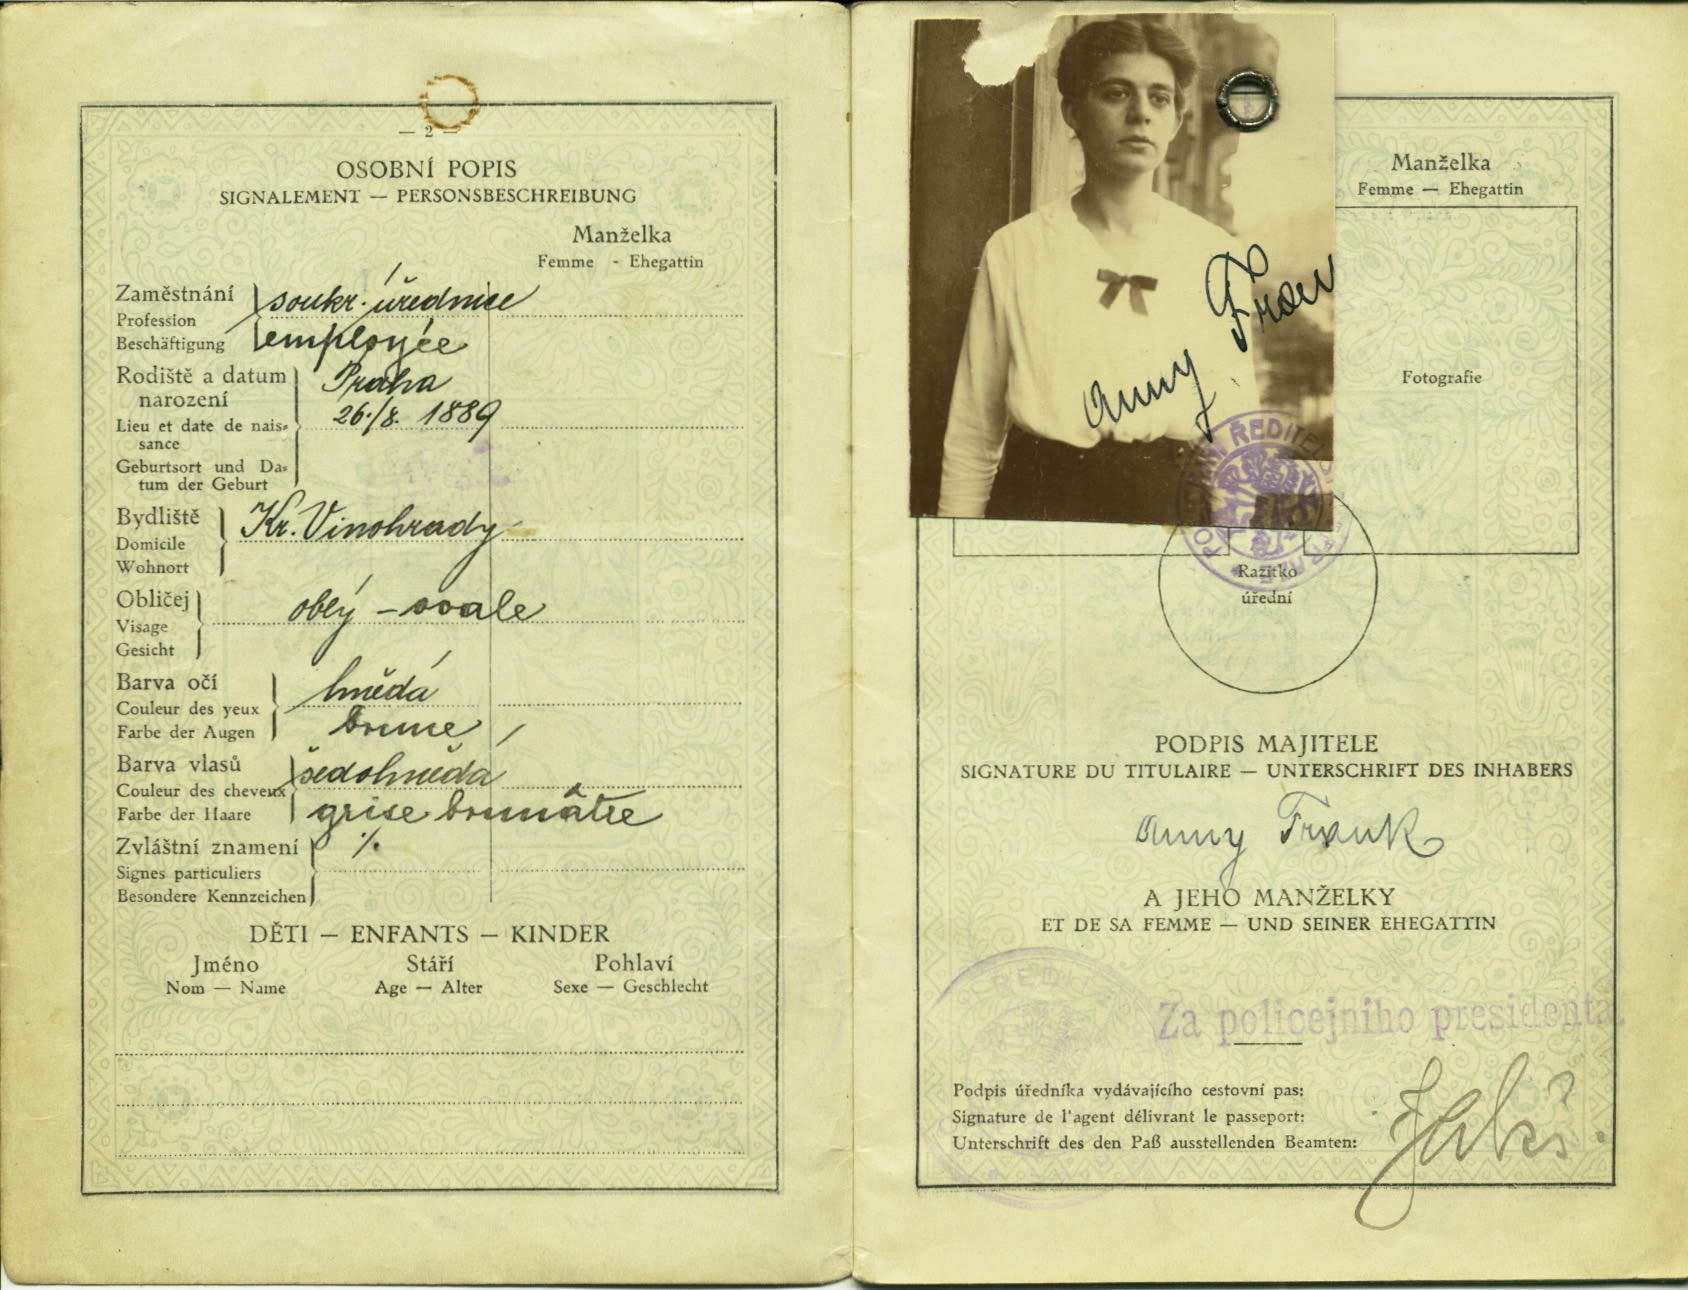 — 2 —
OSOBNÍ POPIS
SIGNALEMENT — PERSONSBESCHREIBUNG
Manželka
Femme - Ehegattin
Zaměstnání
Profession
Beschäftigung
soukr. úřednice
employée
Rodiště a datum
narození
Lieu et date de nais-
sance
Geburtsort und Da-
tum der Geburt
Praha
26./8. 1889
Bydliště
Domicile
Wohnort
Kr. Vinohrady
Obličej
Visage
Gesicht
oblý – ovale
Barva očí
Couleur des yeux
Farbe der Augen
hnědá
brune
Barva vlasů
Couleur des cheveux
Farbe der Haare
šedohnědá
grise brunâtre
Zvláštní znamení
Signes particuliers
Besondere Kennzeichen
./.
DĚTI — ENFANTS — KINDER
Jméno Stáří Pohlaví
Nom — Name Age — Alter Sexe — Geschlecht
Anny Fran
Manželka
Femme — Ehegattin
Fotografie
Razítko
úřední
PODPIS MAJITELE
SIGNATURE DU TITULAIRE — UNTERSCHRIFT DES INHABERS
Anny Frank
A JEHO MANŽELKY
ET DE SA FEMME — UND SEINER EHEGATTIN
Za policejního presidenta.
Podpis úředníka vydávajícího cestovní pas:
Signature de l'agent délivrant le passeport:
Unterschrift des den Paß ausstellenden Beamten: